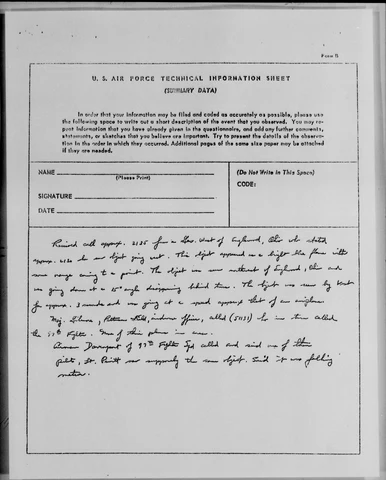 Form B
U. S. AIR FORCE TECHNICAL INFORMATION SHEET
(SUMMARY DATA)
In order that your information may be filed and coded as accurately as possible, please use
the following space to write out a short description of the event that you observed. You may re-
peat information that you have already given in the questionnaire, and add any further comments,
statements, or sketches that you believe are important. Try to present the details of the observa-
tion in the order in which they occurred. Additional pages of the same size paper may be attached
if they are needed.
NAME
(Please Print)
SIGNATURE
DATE
(Do Not Write in This Space)
CODE:
Received call approx. 2135 from a Geo. West of Englewood, Ohio who stated
approx. he saw object going west. This object appeared as a bright blue flame with
some orange coming to a point. The object was seen northwest of Englewood, Ohio and
was going down at a 15° angle disappearing behind trees. The object was seen by West
for approx. 3 seconds and was going at a speed approx of that of an airplane
Maj. , Patterson Field, officer, called (51131) who in turn called
the 97th Fighter. None of their planes in area.
Airman Davenport of 97th Fighter Sqd called and said one of their
pilots, Lt. saw supposedly the same object. Said it was falling
meteor.